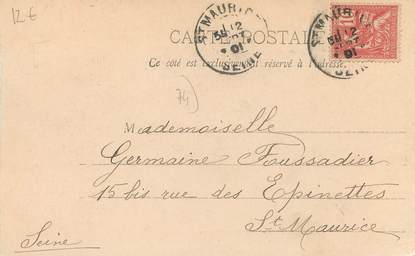 12 €
ST MAURICE
12
01
SEINE
ST MAURICE
12
01
SEINE
10
CARTE POSTALE
Ce côté est exclusivement réservé à l'adresse.
74
Mademoiselle
Germaine Foussadier
15 bis rue des Epinettes
St Maurice
Seine